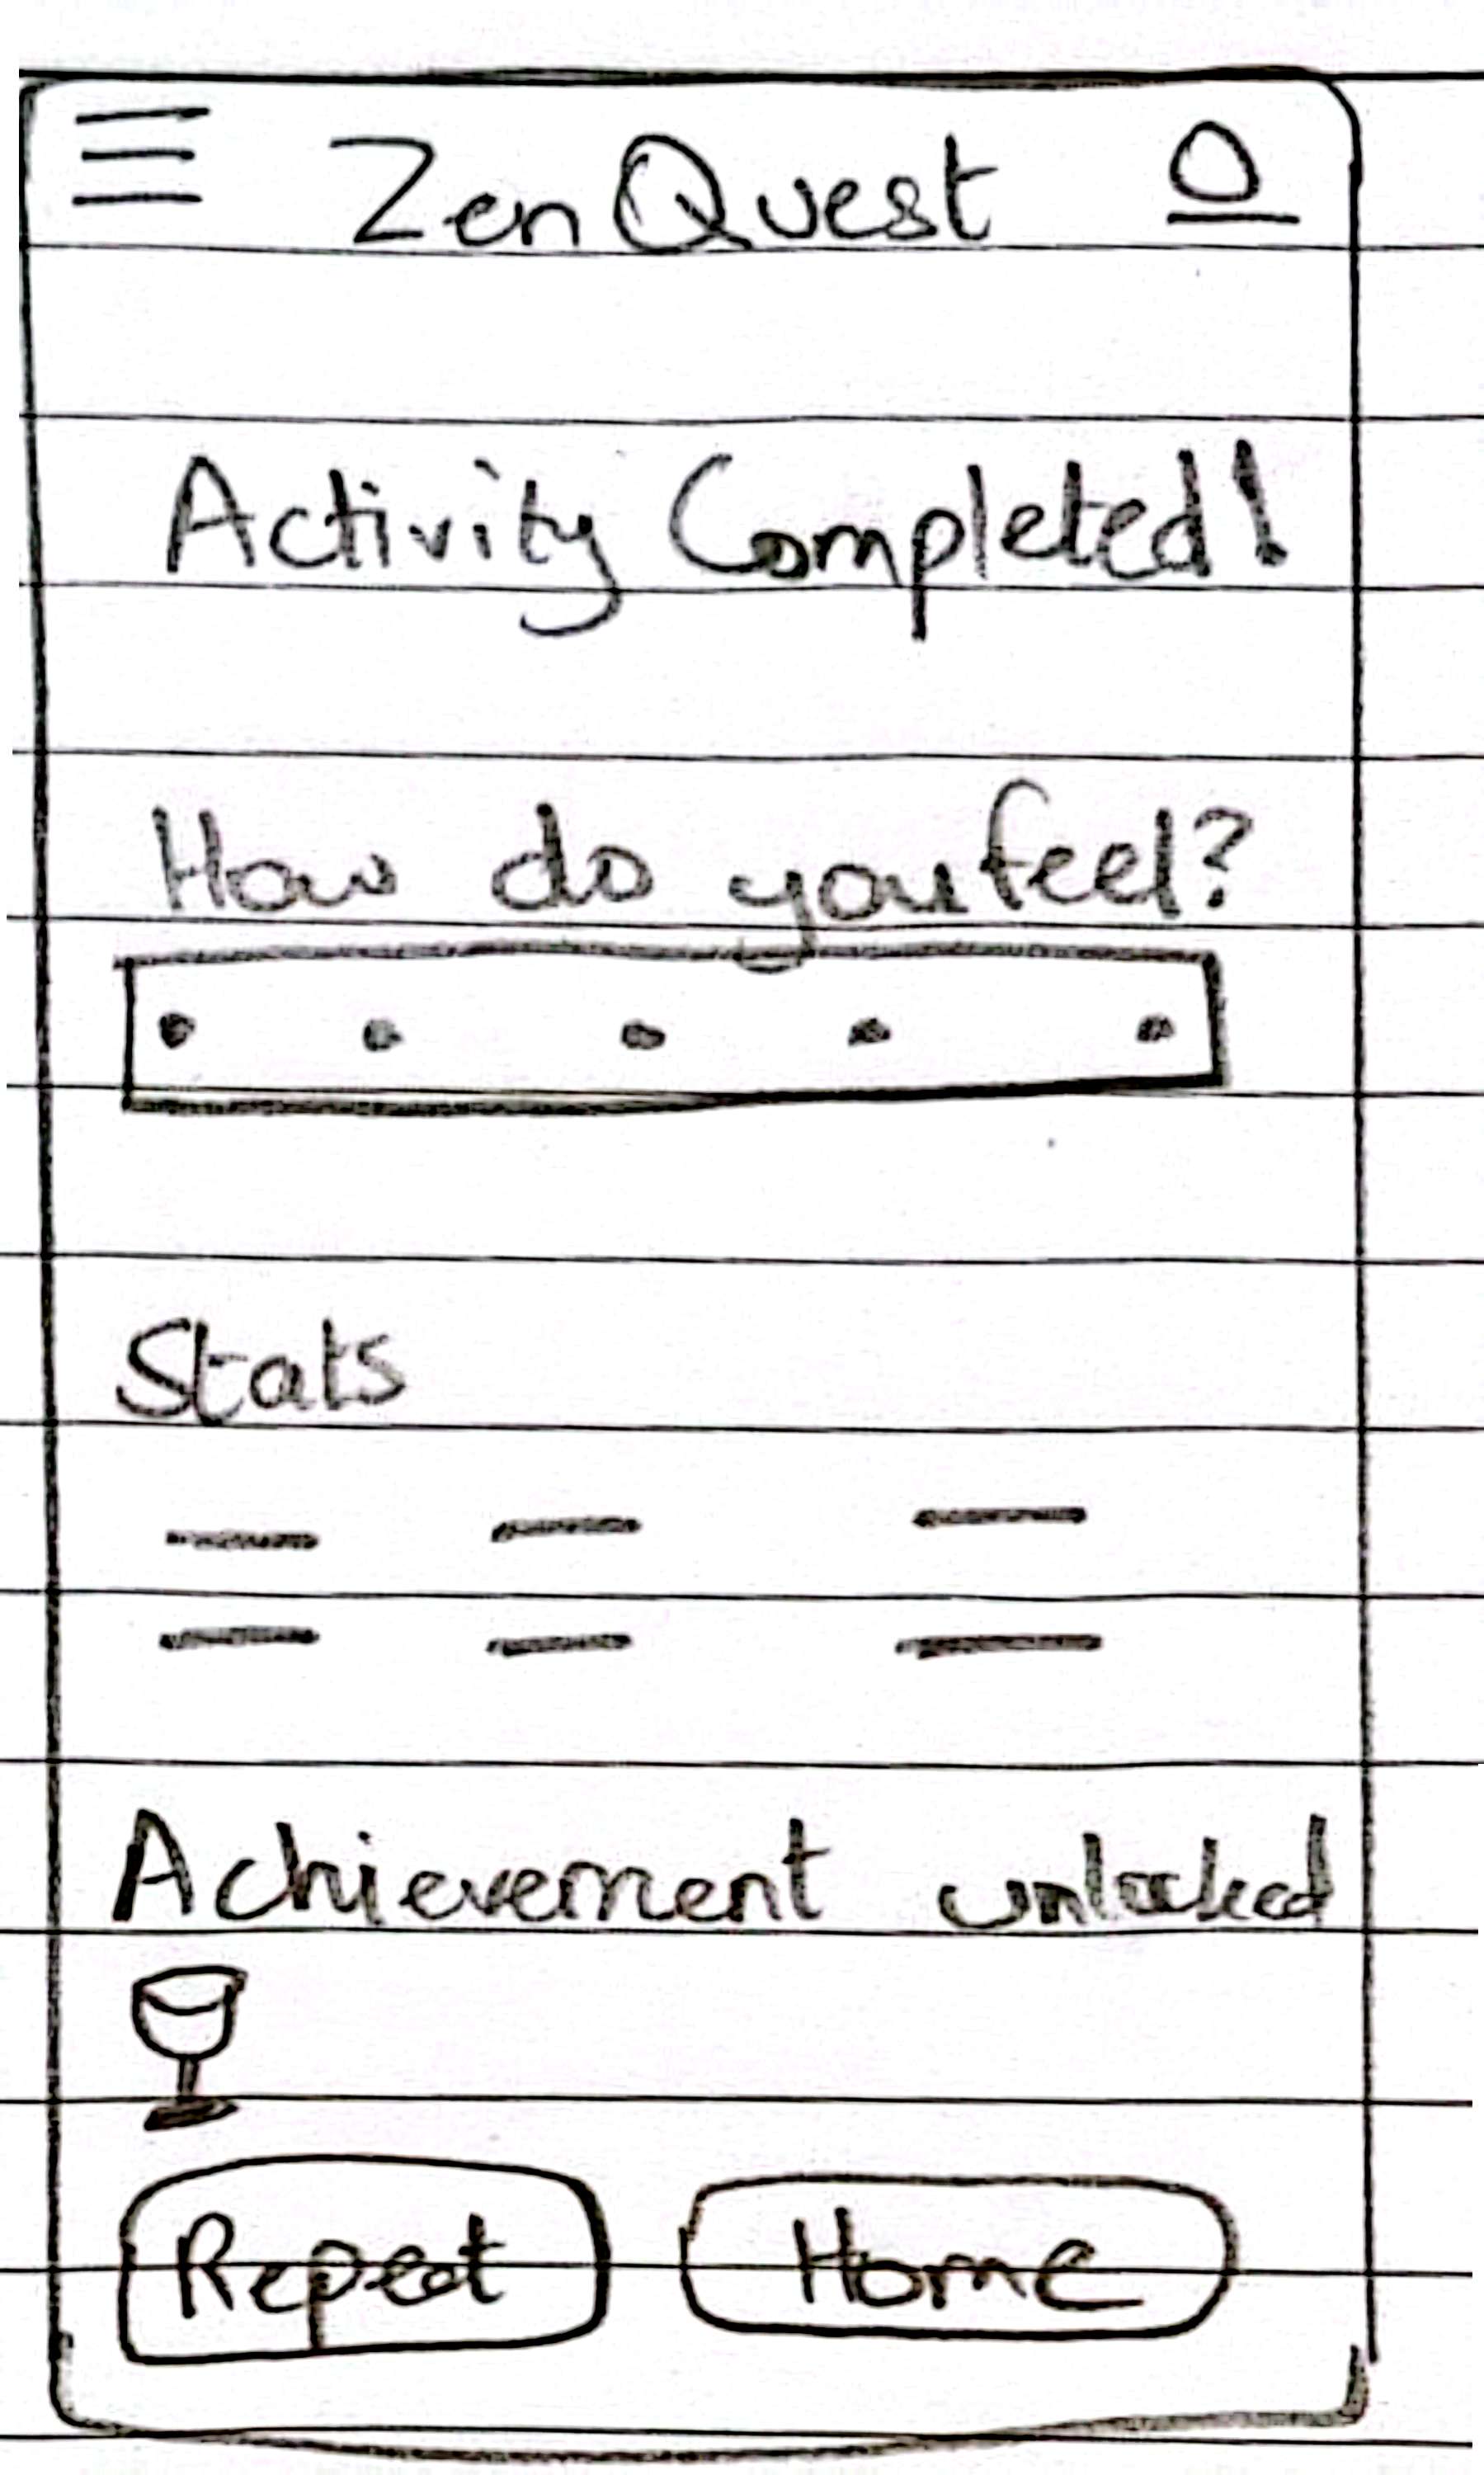 Zen Quest
Activity Completed!
How do you feel?
Stats
Achievement unlocked
Repeat Home